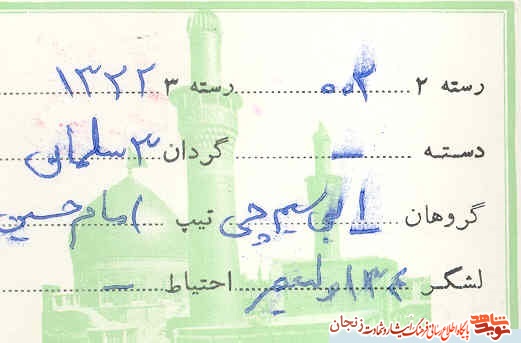 رسته ۲ ۳۰۰ رسته ۳ ۱۳۲۲
دسته – گردان ۳ سلمان
گروهان ۱ بی سیم چی تیپ امام حسین
لشگر احتیاط –
نوید شاهد
پایگاه اطلاع رسانی فرهنگ ایثار و شهادت زنجان